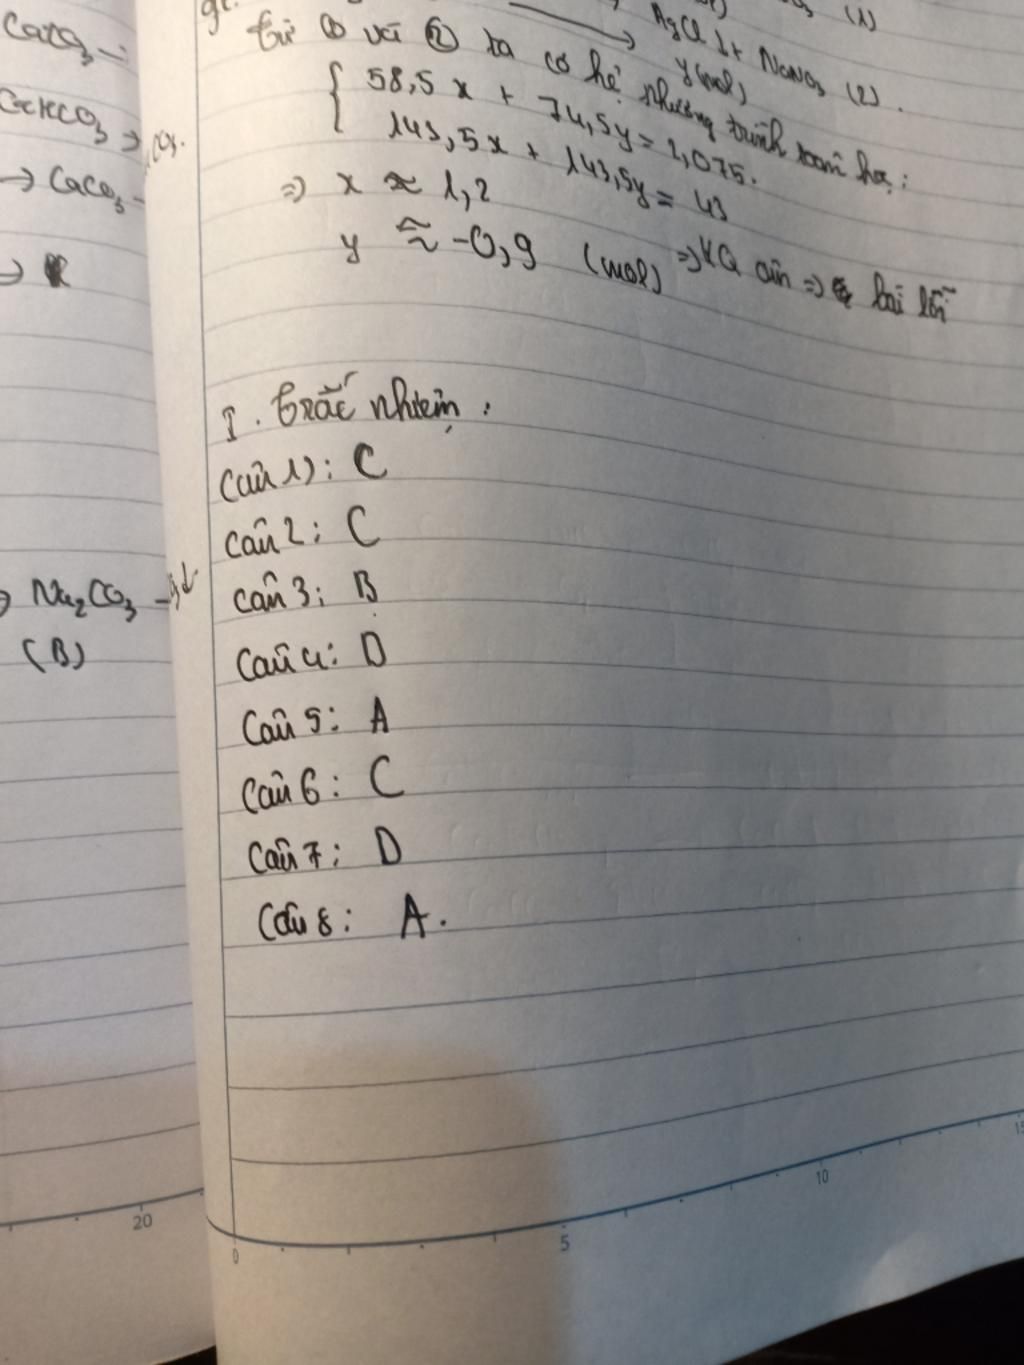 CaCO3
→ CaCO3
→
→ Na2CO3
(B)
AgCl ↓ + NaNO3 (2).
y(mol)
Từ ① và ② ta có hệ phương trình toán học:
58,5x + 74,5y = 2,075.
143,5x + 143,5y = 43
=> x ≈ 1,2
y ≈ -0,9 (mol) => KQ âm => bài lỗi
I. Trắc nhiệm:
Câu 1): C
Câu 2: C
Câu 3: B
Câu 4: D
Câu 5: A
Câu 6: C
Câu 7: D
Câu 8: A.
20
0
5
10
15